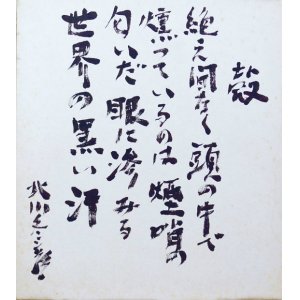 殻
絶え間なく頭の中で
燻っているのは煙硝の
匂いだ眼に滲みる
世界の黒い汗